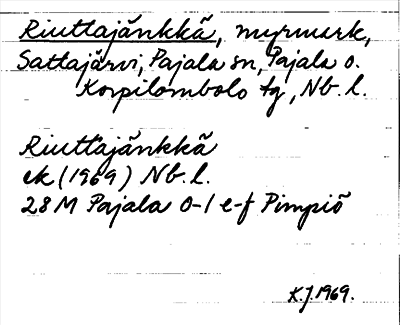 Riuttajänkkä, myrmark,
Sattajärvi, Pajala sn, Pajala o.
Korpilombolo tg, Nb. l.
Riuttajänkkä
ek (1969) Nb. l.
28 M Pajala 0-1 e-f Pimpiö
K.J. 1969.